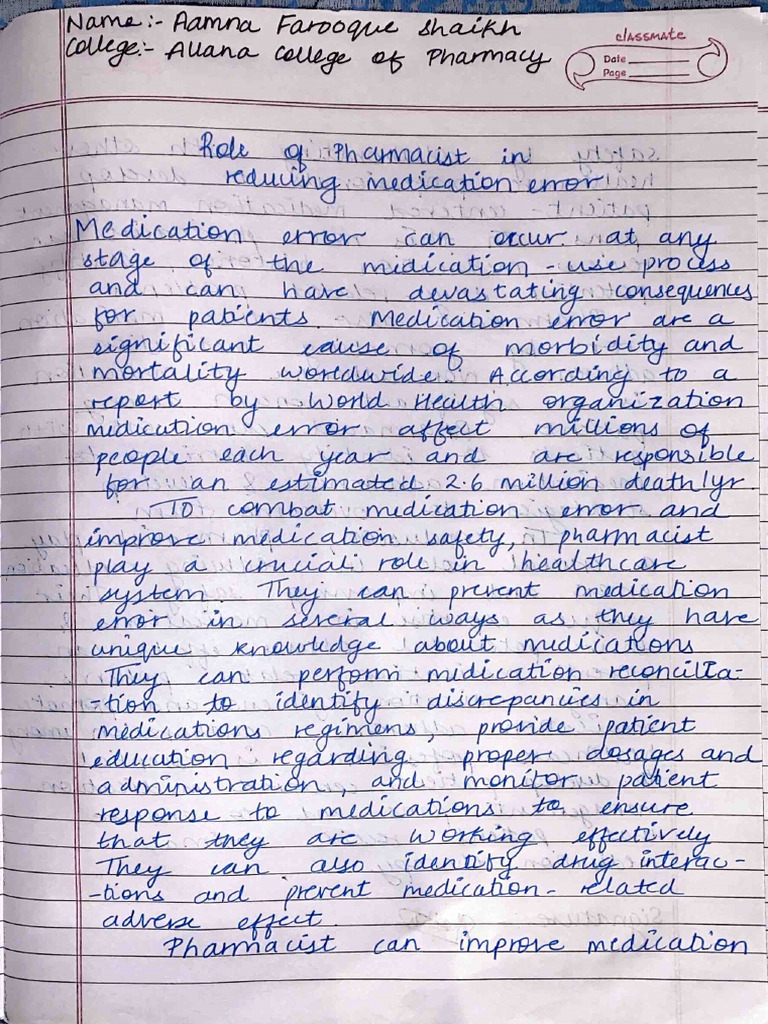 Name:- Aamna Farooque Shaikh
College:- Allana College of Pharmacy
classmate
Date
Page
Role of Pharmacist in
reducing medication error
Medication error can occur at any
stage of the midication - use process
and can have devastating consequences
for patients. Medication error are a
significant cause of morbidity and
mortality worldwide. According to a
report by World Health organization
medication error affect millions of
people each year and are responsible
for an estimated 2.6 million death/yr
To combat medication error and
improve medication safety, pharmacist
play a crucial role in healthcare
system. They can prevent medication
error in several ways as they have
unique knowledge about medications
They can perform midication reconcilia-
-tion to identify discrepancies in
medications regimens, provide patient
education regarding proper dosages and
administration, and monitor patient
response to medications to ensure
that they are working effectively
They can also identify drug interac-
-tions and prevent medication - related
adverse effect.
Pharmacist can improve medication